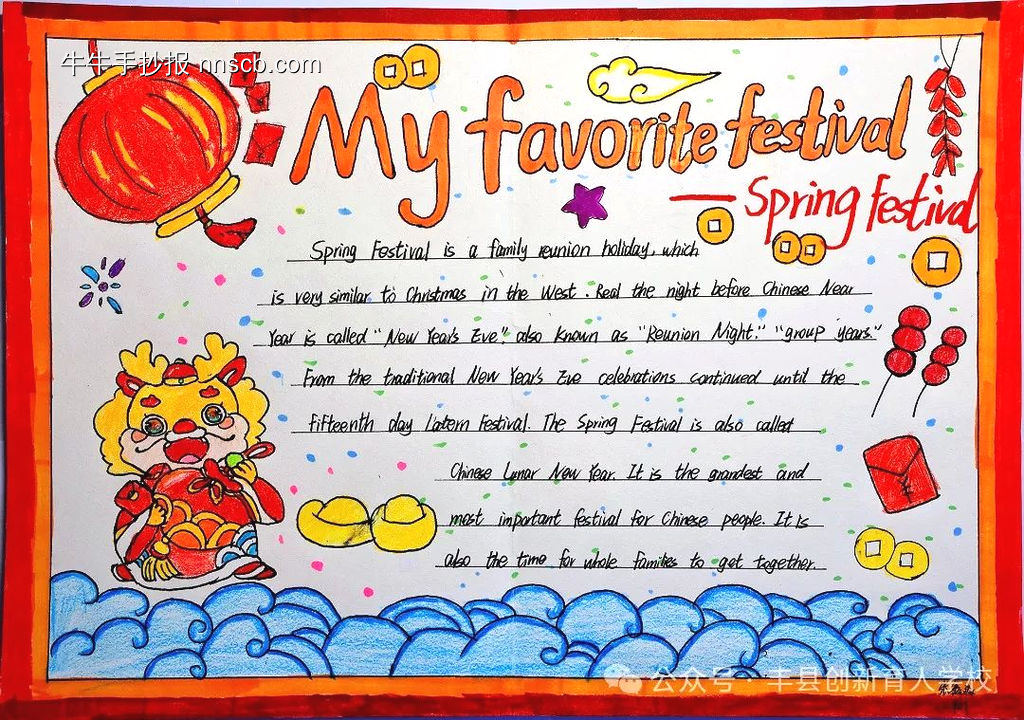 牛牛手抄报 nnscb.com
My favorite festival
—Spring Festival
Spring Festival is a family reunion holiday, which
is very similar to Christmas in the West. Real the night before Chinese New
Year is called "New Year's Eve." also known as "Reunion Night." "group years."
From the traditional New Year's Eve celebrations continued until the
fifteenth day Latern Festival. The Spring Festival is also called
Chinese Lunar New Year. It is the grandest and
most important festival for Chinese people. It is
also the time for whole families to get together.
公众号 · 丰县创新育人学校